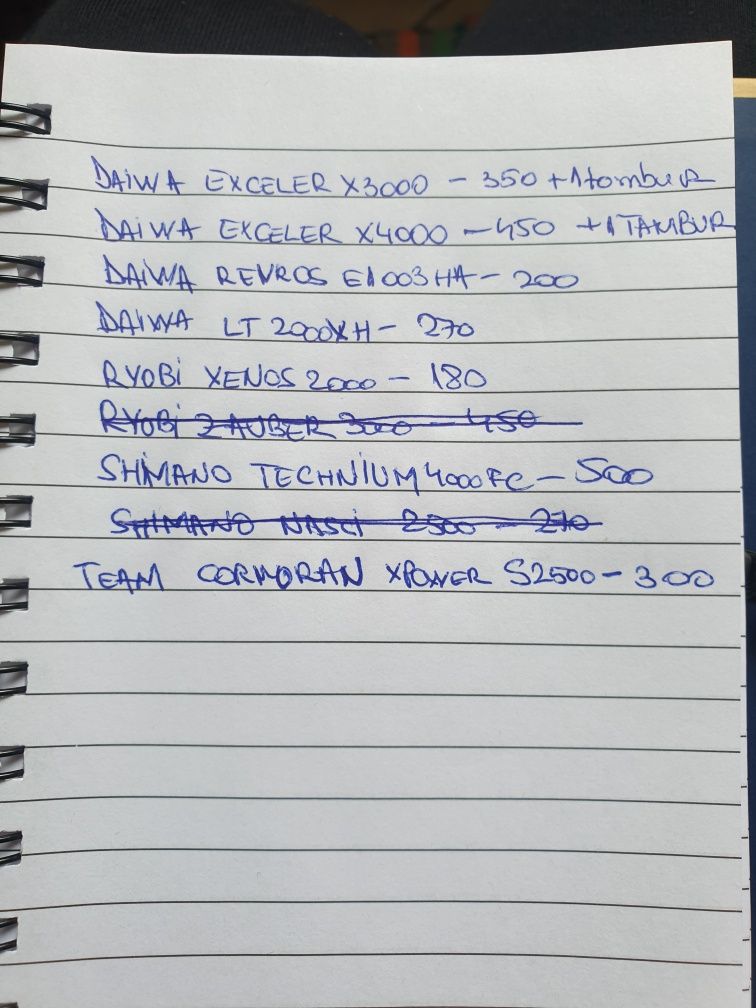 DAIWA EXCELER X3000 - 350 + 1 tambur
DAIWA EXCELER X4000 - 450 + 1 TAMBUR
DAIWA REVROS E1003HA - 200
DAIWA LT 2000XH - 270
RYOBI XENOS 2000 - 180
RYOBI ZAUBER 3000 - 450
SHIMANO TECHNIUM 4000FC - 500
SHIMANO NASCI 2500 - 270
TEAM CORMORAN XPOWER S2500 - 300